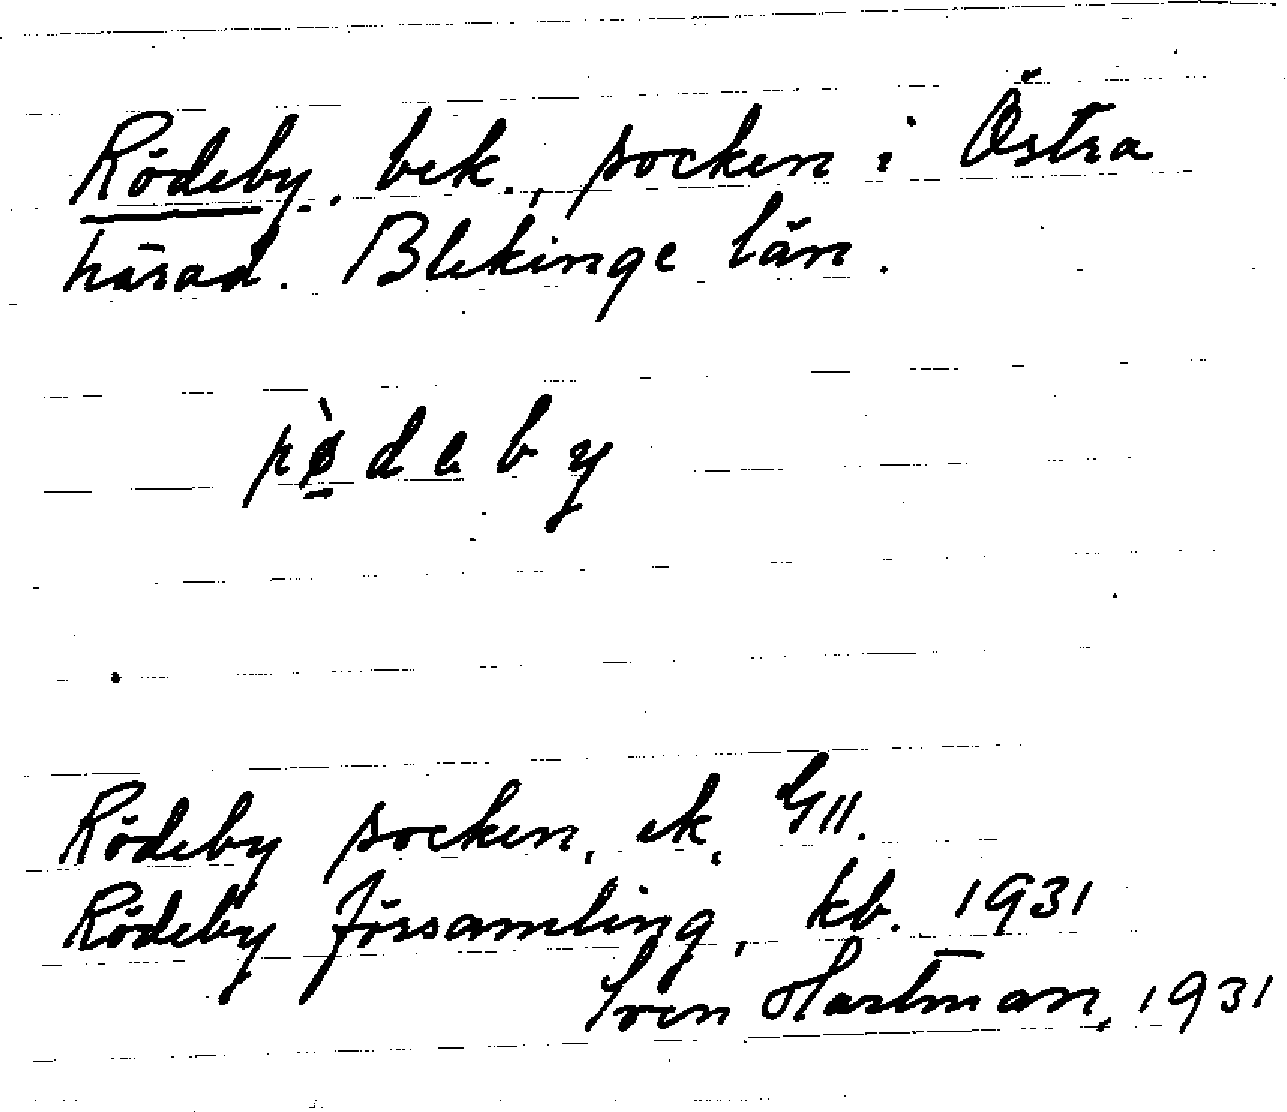 Rödeby, bek., socken i Östra
härad. Blekinge län.
rø̀deby
Rödeby socken, ek, G11.
Rödeby församling, kb. 1931
Sven Hartman, 1931